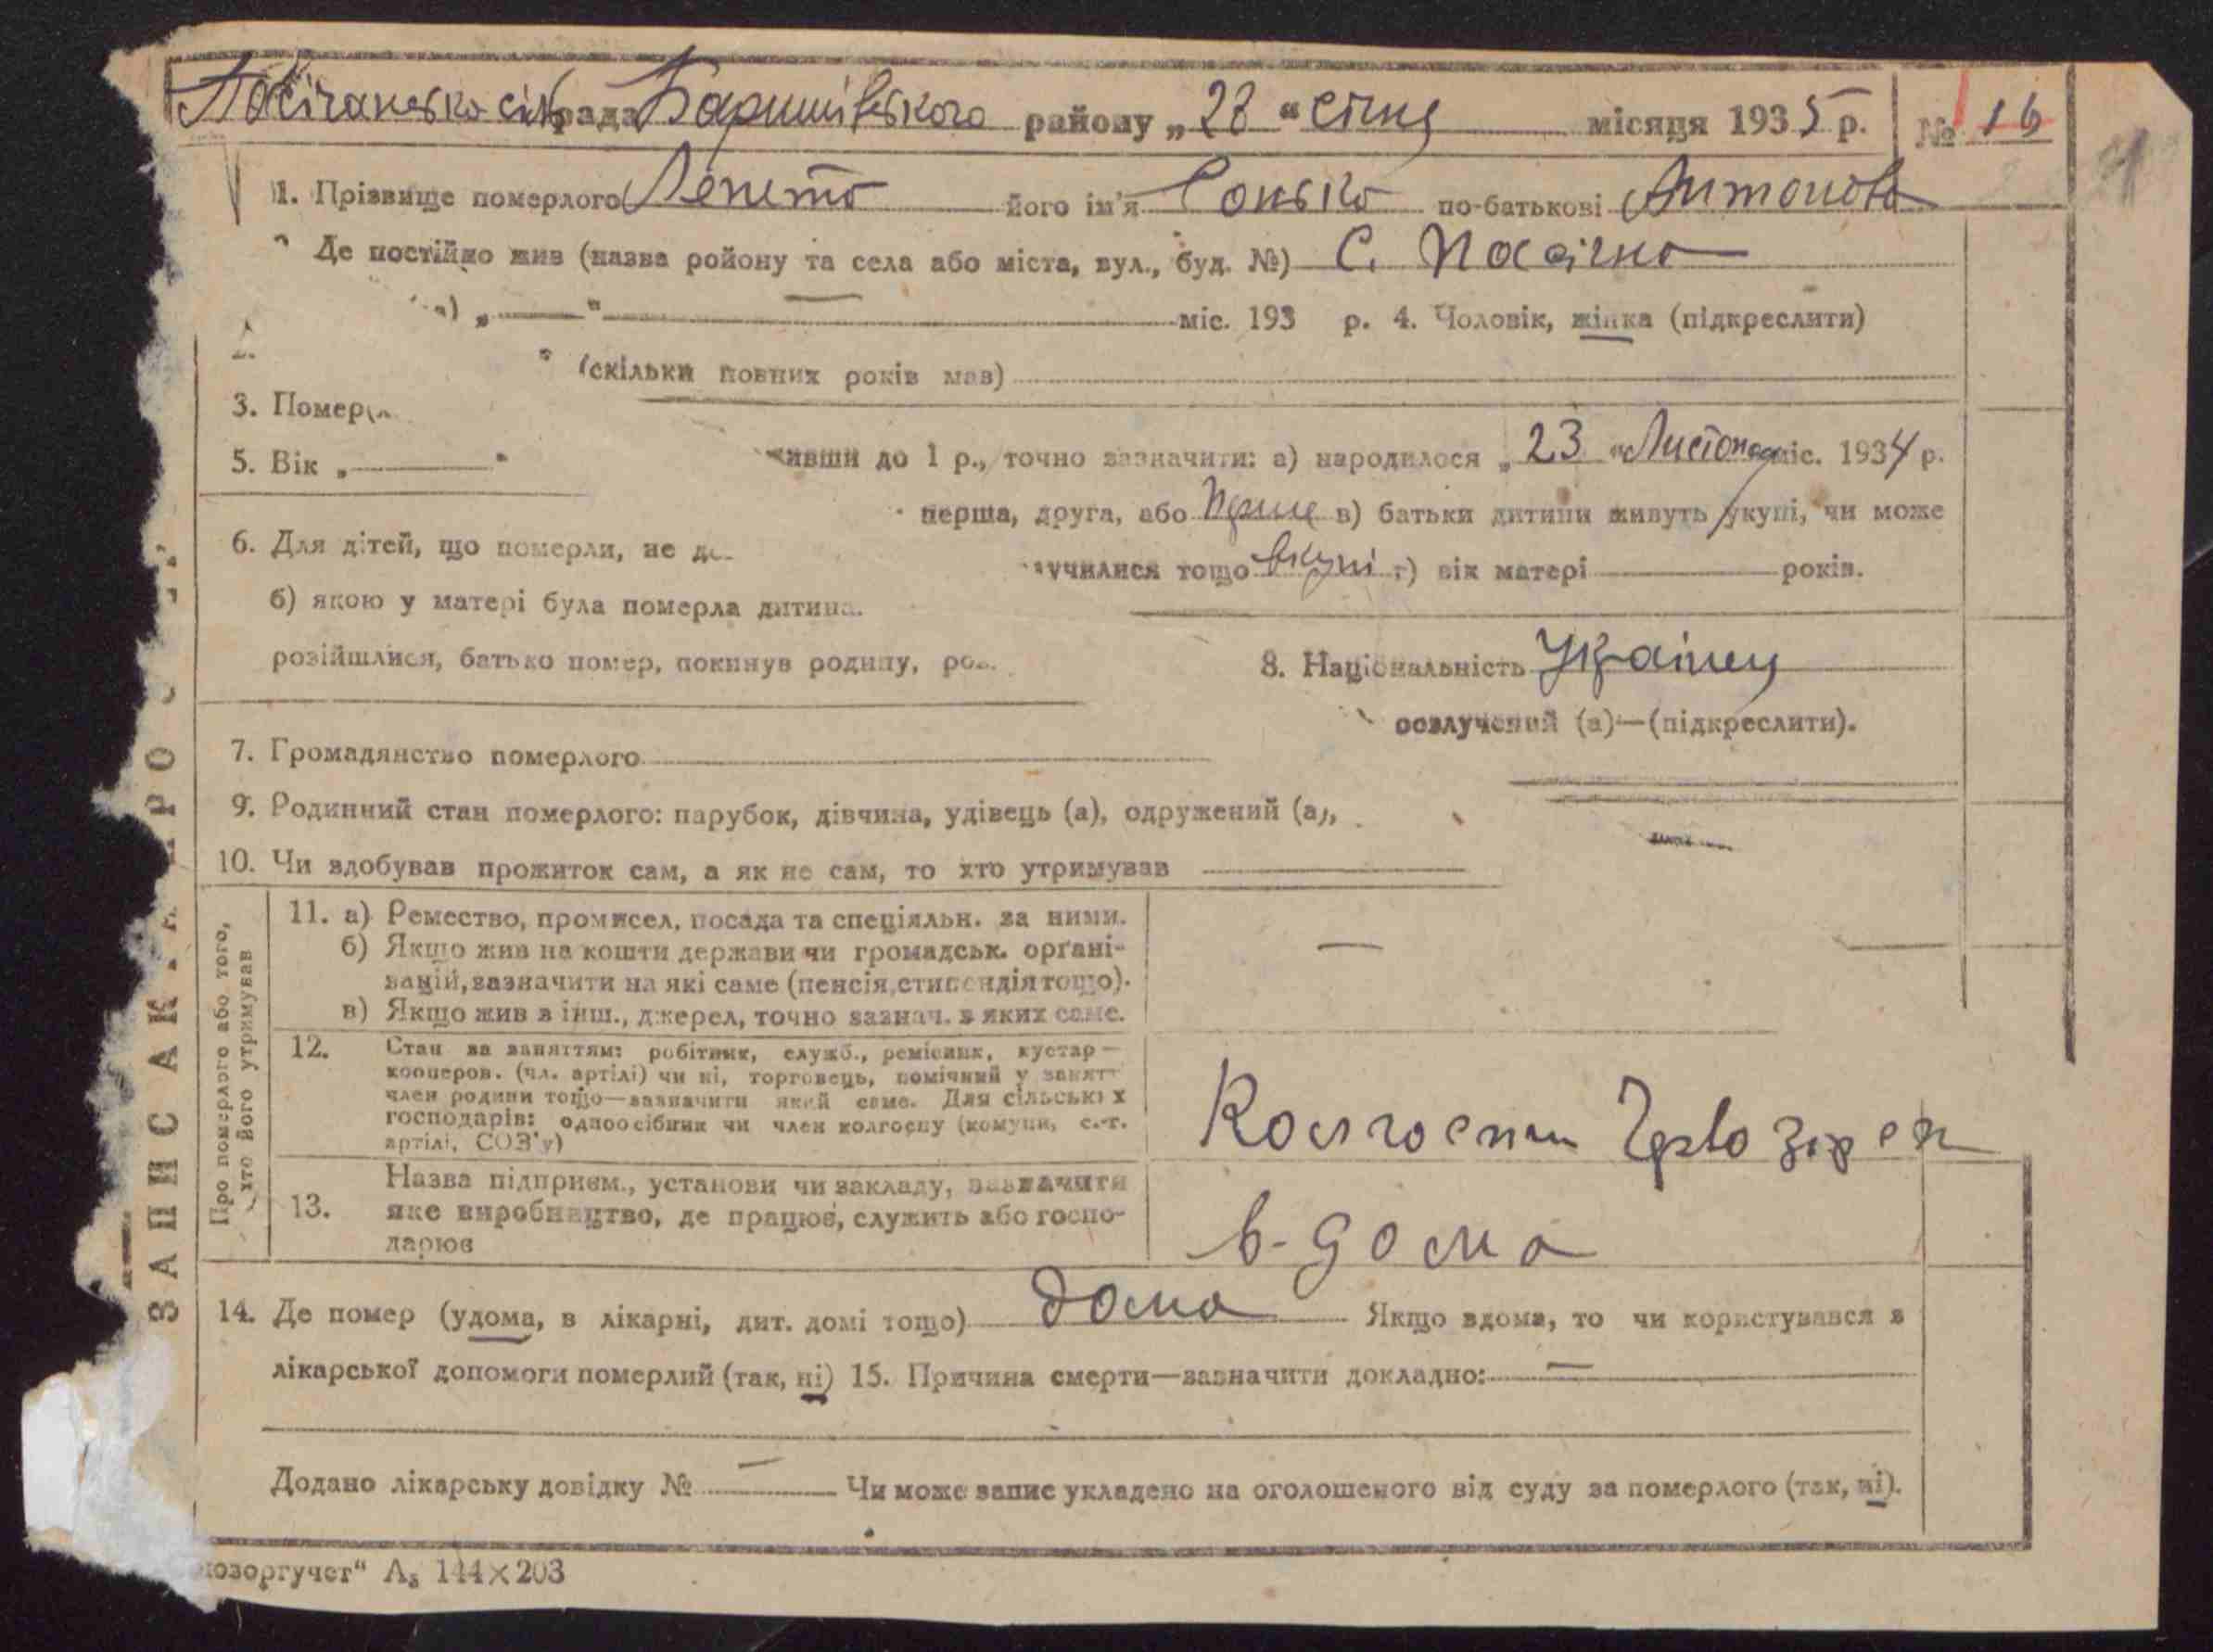 Пасічанська сільрада Баришівського району „23“ січня місяця 1935 р. № 16
1. Прізвище померлого його ім'я Сонька по-батькові Антонова
Де постійно жив (назва ройону та села або міста, вул., буд. №) С. Пасічна
„—“ — міс. 193 р. 4. Чоловік, жінка (підкреслити)
(скільки повних років мав)
3. Помер
5. Вік „—“
живши до 1 р., точно зазначити: а) народилося „23“ Листопад міс. 1934 р.
6. Для дітей, що померли, не
перша, друга, або перше в) батьки дитини живуть укупі, чи може
б) якою у матері була померла дитина.
училися тощо вкупі г) вік матері — років.
розійшлися, батько помер, покинув родину,
8. Національність Українец
7. Громадянство померлого
розлучений (а)—(підкреслити).
9. Родинний стан померлого: парубок, дівчина, удівець (а), одружений (а),
10. Чи здобував прожиток сам, а як не сам, то хто утримував —
ЗАПИС АКТА ПРО
Про померлого або того, хто його утримував
11. а) Ремество, промисел, посада та спеціяльн. за ними. —
б) Якщо жив на кошти держави чи громадськ. органі-
зацій, зазначити на які саме (пенсія, стипендія тощо).
в) Якщо жив з інш., джерел, точно зазнач. з яких саме.
12. Стан за заняттям: робітник, служб., ремісник, кустар—
кооперов. (чл. артілі) чи ні, торговець, помічний у занятт
член родини тощо—зазначити який саме. Для сільських
господарів: одноосібник чи член колгоспу (комуни, с.-г.
артілі, СОЗ'у)
Колгоспн
13. Назва підприєм., установи чи закладу, зазначити
яке виробництво, де працює, служить або госпо-
дарює
в-дома
14. Де помер (удома, в лікарні, дит. домі тощо) дома Якщо вдома, то чи користувався з
лікарської допомоги померлий (так, ні) 15. Причина смерти—зазначити докладно: —
Додано лікарську довідку № — Чи може запис укладено на оголошеного від суду за померлого (так, ні).
юзоргучет“ А₅ 144×203